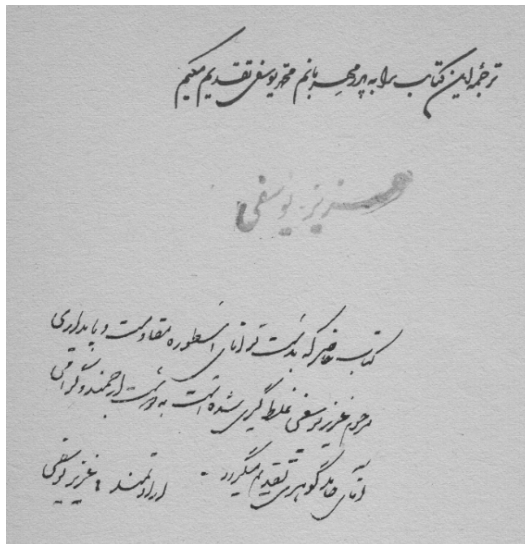 ترجمهٔ این کتاب را به پدر مهربانم محمد یوسفی تقدیم میکنم
عزیز یوسفی
کتاب حاضر که بدست توانای اسطوره مقاومت و پایداری
مرحوم عزیز یوسفی غلط گیری شده است به دوست ارجمند و گرامی
آقای حامد گوهری تقدیم میگردد - ارادتمند: عزیز یوسفی